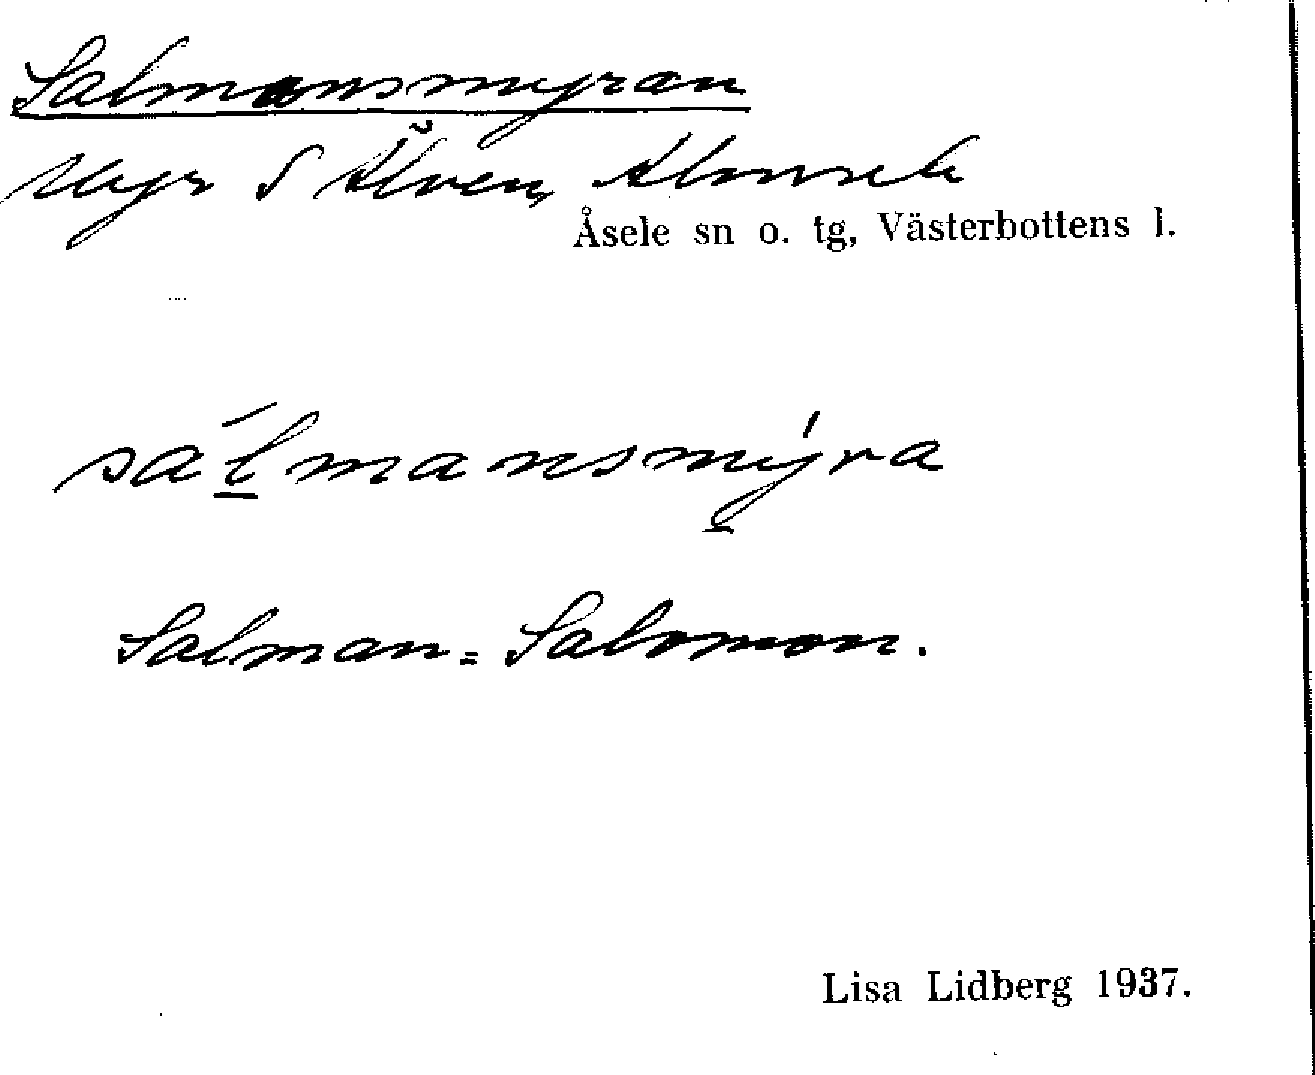 Salmansmyran
Myr S Älven, Almsele
Åsele sn o. tg, Västerbottens l.
sálmansmýra
Salman = Salomon.
Lisa Lidberg 1937.